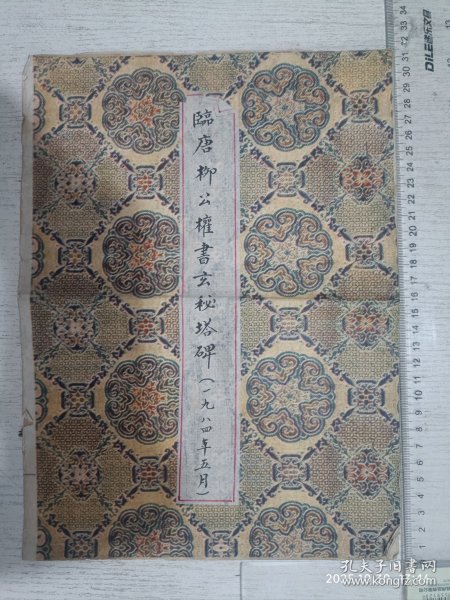 臨唐柳公權書玄秘塔碑(一九八四年五月)
DiLE
34
33
32
31
30
29
28
27
26
25
24
23
22
21
20
19
18
17
16
15
14
13
12
11
10
9
8
7
6
5
4
3
2
1
孔夫子旧书网